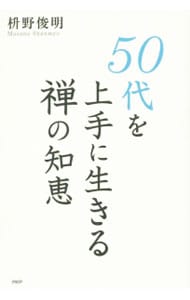 枡野俊明
Masuno Shunmyo
50代を
上手に生きる
禅の知恵
PHP